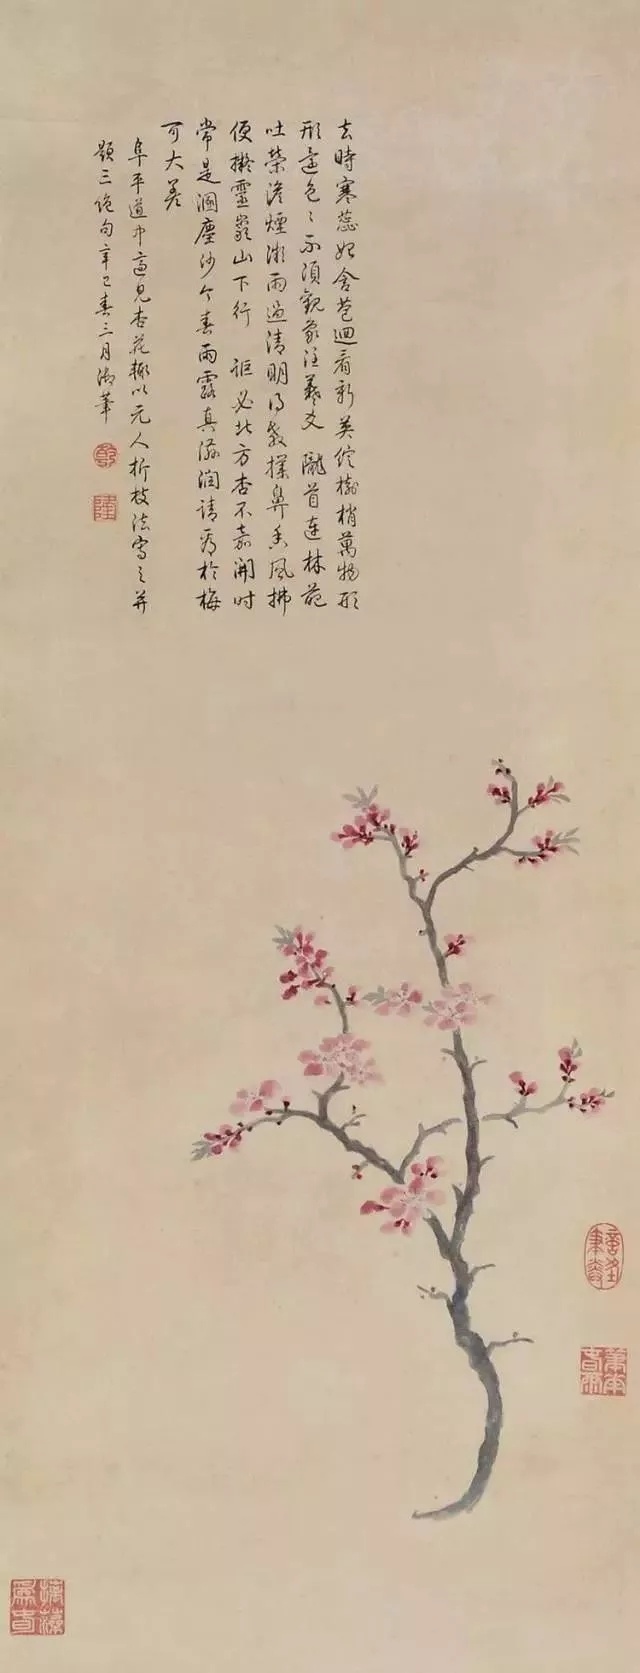 去時寒蕊始含苞迴看新英綻樹梢萬物形
形還色〻不須觀象注羲爻 隴首連林葩
吐榮澹煙微雨過清明得教撲鼻香風拂
便擬靈巖山下行 詎必北方杏不嘉開時
常是溷塵沙今春雨露真滋潤請看於梅
可大差
阜平道中適見杏花輒以元人折枝法寫之并
題三絕句辛巳春三月御筆
乾
隆